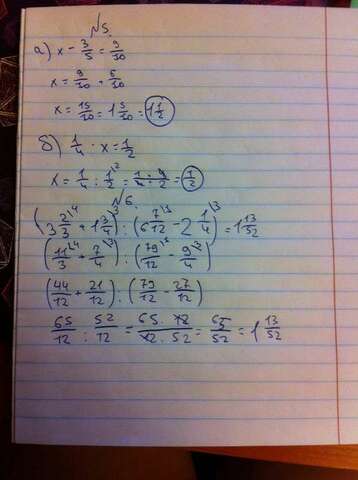 №5.
а) x - 3/5 = 9/10
x = 9/10 + 6/10
x = 15/10 = 1 5/10 = 1 1/2
б) 1/4 · x = 1/2
x = 1/4 : 1/2 \2 = 1 · 4 / 4 · 2 = 1/2
№6.
(3 2/3 \4 + 1 3/4 \3) : (6 7/12 \3 - 2 1/4 \3) = 1 13/52
(11/3 \4 + 7/4 \3) : (79/12 - 9/4 \3)
(44/12 + 21/12) : (79/12 - 27/12)
65/12 : 52/12 = 65 · 12 / 12 · 52 = 65/52 = 1 13/52